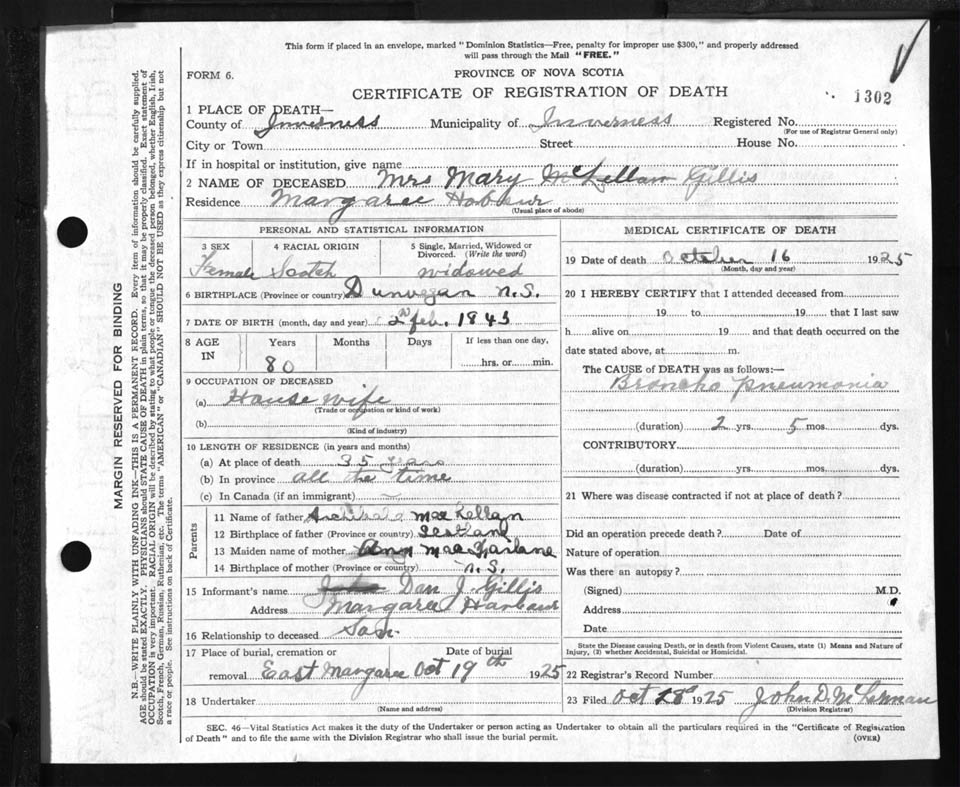 This form if placed in an envelope, marked "Dominion Statistics—Free, penalty for improper use $300," and properly addressed
will pass through the Mail "FREE."
FORM 6. PROVINCE OF NOVA SCOTIA
CERTIFICATE OF REGISTRATION OF DEATH
1302
1 PLACE OF DEATH—
County of Inverness Municipality of Inverness Registered No.
(For use of Registrar General only)
City or Town Street House No.
If in hospital or institution, give name
2 NAME OF DECEASED Mrs Mary McKellan Gillis
Residence Margaree Harbour
(Usual place of abode)
PERSONAL AND STATISTICAL INFORMATION
3 SEX 4 RACIAL ORIGIN 5 Single, Married, Widowed or Divorced. (Write the word)
Female Scotch widowed
6 BIRTHPLACE (Province or country) Dunvegan N.S.
7 DATE OF BIRTH (month, day and year) 2nd feb. 1845
8 AGE IN Years Months Days If less than one day,
80 hrs. or min.
9 OCCUPATION OF DECEASED
(a) House wife
(Trade or occupation or kind of work)
(b)
(Kind of industry)
10 LENGTH OF RESIDENCE (in years and months)
(a) At place of death 35 years
(b) In province all the time
(c) In Canada (if an immigrant)
Parents
11 Name of father Archibald MacKellan
12 Birthplace of father (Province or country) Scotland
13 Maiden name of mother Any MacFarlane
14 Birthplace of mother (Province or country) N.S.
15 Informant's name Dan J. Gillis
Address Margaree Harbour
16 Relationship to deceased Son
17 Place of burial, cremation or removal Date of burial
East Margaree Oct 19th 1925
18 Undertaker
(Name and address)
MEDICAL CERTIFICATE OF DEATH
19 Date of death October 16 1925
(Month, day and year)
20 I HEREBY CERTIFY that I attended deceased from
19 to 19 that I last saw
h alive on 19 and that death occurred on the
date stated above, at m.
The CAUSE of DEATH was as follows:—
Broncho pneumonia
(duration) 2 yrs. 5 mos. dys.
CONTRIBUTORY
(duration) yrs. mos. dys.
21 Where was disease contracted if not at place of death?
Did an operation precede death? Date of
Nature of operation
Was there an autopsy?
(Signed) M.D.
Address
Date
State the Disease causing Death, or in death from Violent Causes, state (1) Means and Nature of
Injury, (2) whether Accidental, Suicidal or Homicidal.
22 Registrar's Record Number
23 Filed Oct 28 1925 John D.
(Division Registrar)
SEC. 46—Vital Statistics Act makes it the duty of the Undertaker or person acting as Undertaker to obtain all the particulars required in the "Certificate of Registration
of Death" and to file the same with the Division Registrar who shall issue the burial permit.
(OVER)
MARGIN RESERVED FOR BINDING
N.B.—WRITE PLAINLY WITH UNFADING INK—THIS IS A PERMANENT RECORD. Every item of information should be carefully supplied.
AGE should be stated EXACTLY. PHYSICIANS should STATE CAUSE OF DEATH in plain terms, so that it may be properly classified. Exact statement of
OCCUPATION is very important. RACIAL ORIGIN will be described by stating to what people or tongue the deceased person belonged, whether English, Irish,
Scotch, French, German, Russian, Ruthenian, etc. The terms "AMERICAN" or "CANADIAN" SHOULD NOT BE USED as they express citizenship but not
a race or people. See instructions on back of Certificate.